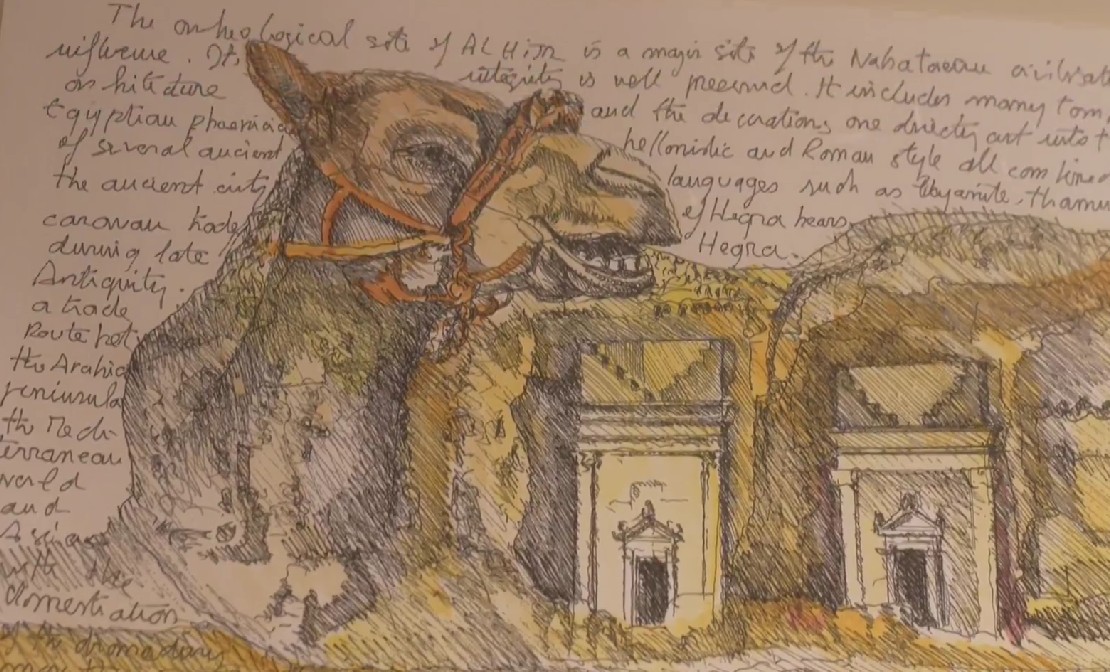 The archeological site of AL HIJR is a major site of the Nabataean civilisat
influence. Its integrity is well preserved. It includes many tom
architecture and the decorations are directly cut into t
Egyptian phoenicia hellenistic and Roman style all combined
of several ancient languages such as lihyanite, thamu
the ancient city of Hegra bears
caravan trade Hegra.
during late
Antiquity.
a trade
Route
the Arabia
peninsula
the Medi-
terranean
world
and
Asia
with the
domestication
of the dromedary